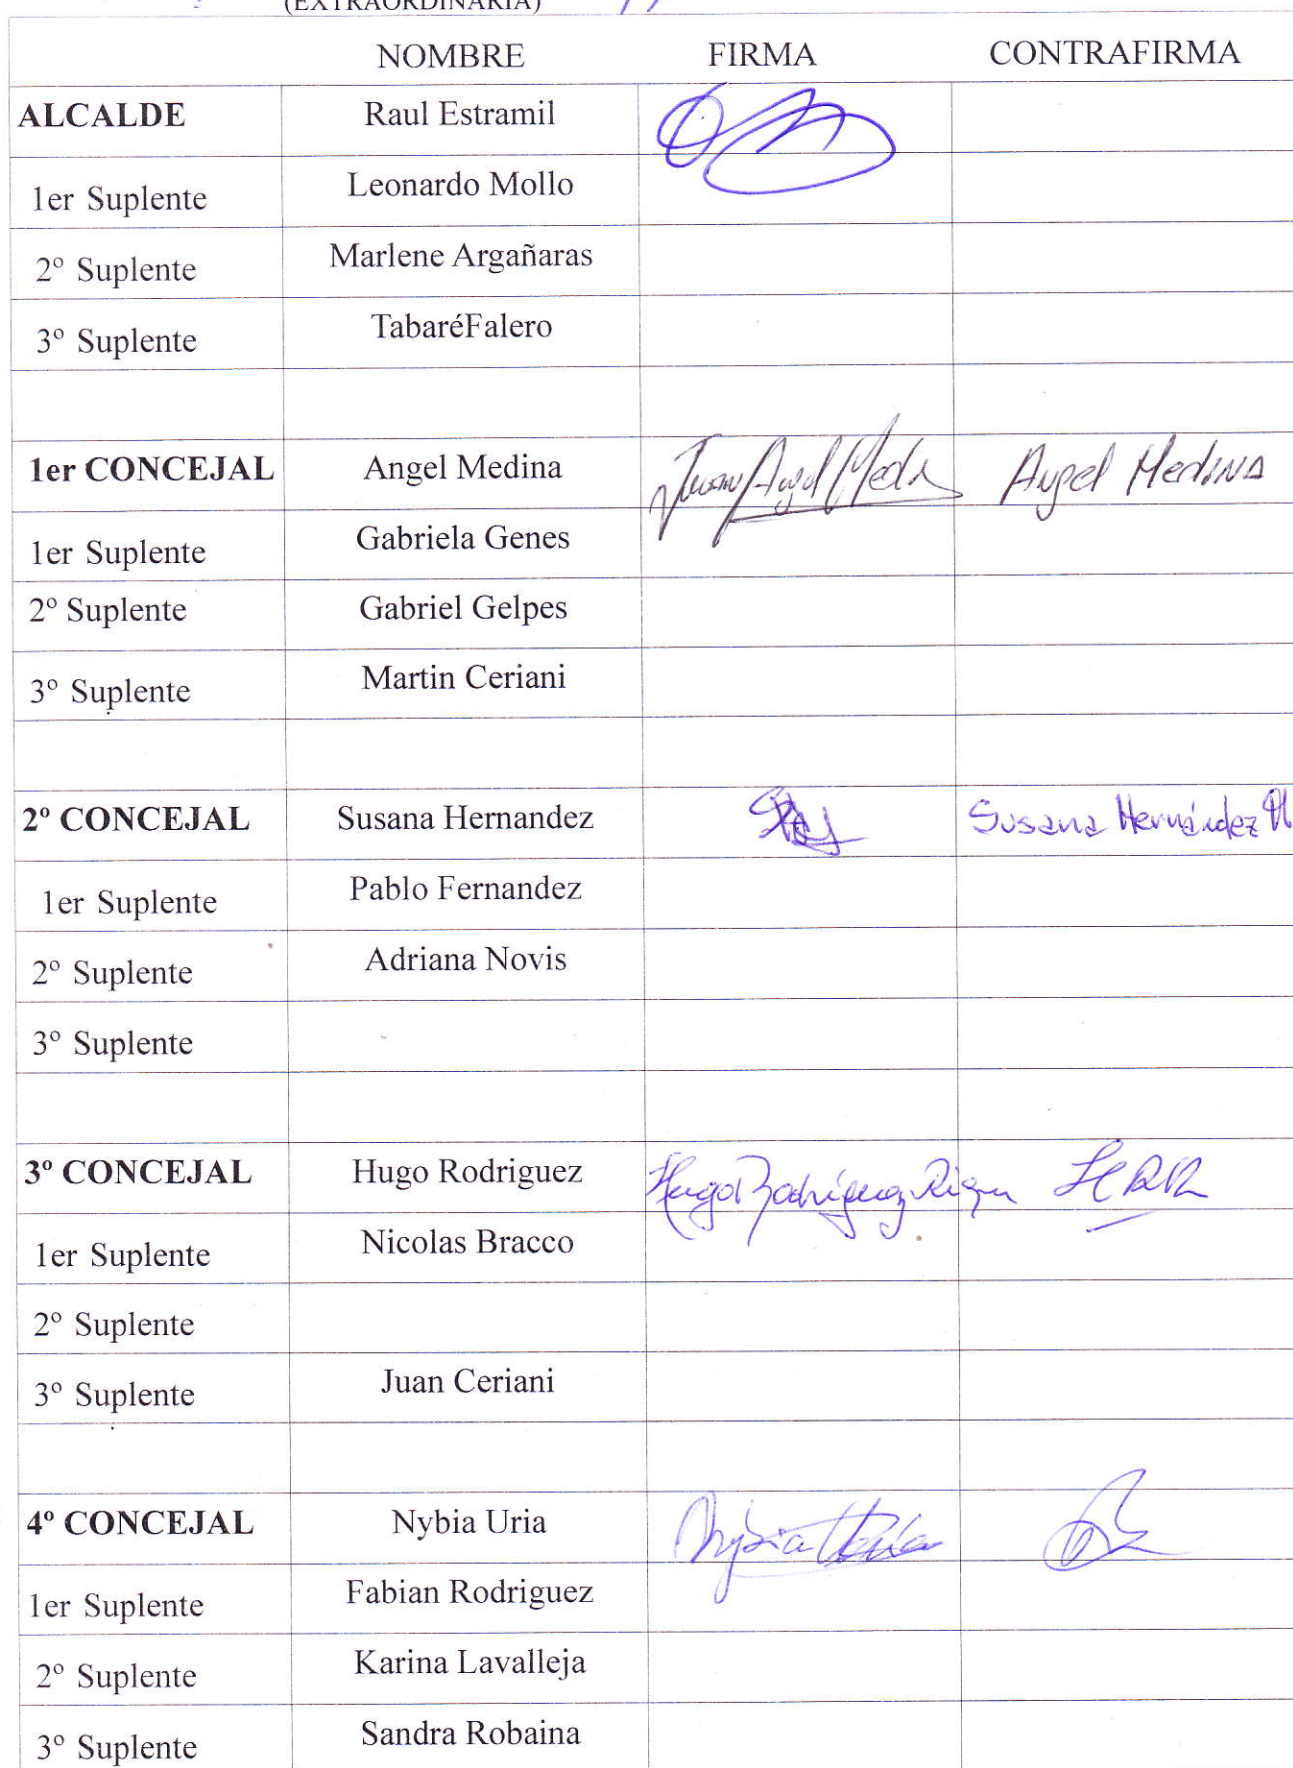 (EXTRAORDINARIA)
NOMBRE FIRMA CONTRAFIRMA
ALCALDE Raul Estramil
1er Suplente Leonardo Mollo
2º Suplente Marlene Argañaras
3º Suplente TabaréFalero
1er CONCEJAL Angel Medina Juan Angel Medi Angel Medina
1er Suplente Gabriela Genes
2º Suplente Gabriel Gelpes
3º Suplente Martin Ceriani
2º CONCEJAL Susana Hernandez Susana Hernández
1er Suplente Pablo Fernandez
2º Suplente Adriana Novis
3º Suplente
3º CONCEJAL Hugo Rodriguez Hugo Rodríguez HRR
1er Suplente Nicolas Bracco
2º Suplente
3º Suplente Juan Ceriani
4º CONCEJAL Nybia Uria Nybia Uría
1er Suplente Fabian Rodriguez
2º Suplente Karina Lavalleja
3º Suplente Sandra Robaina